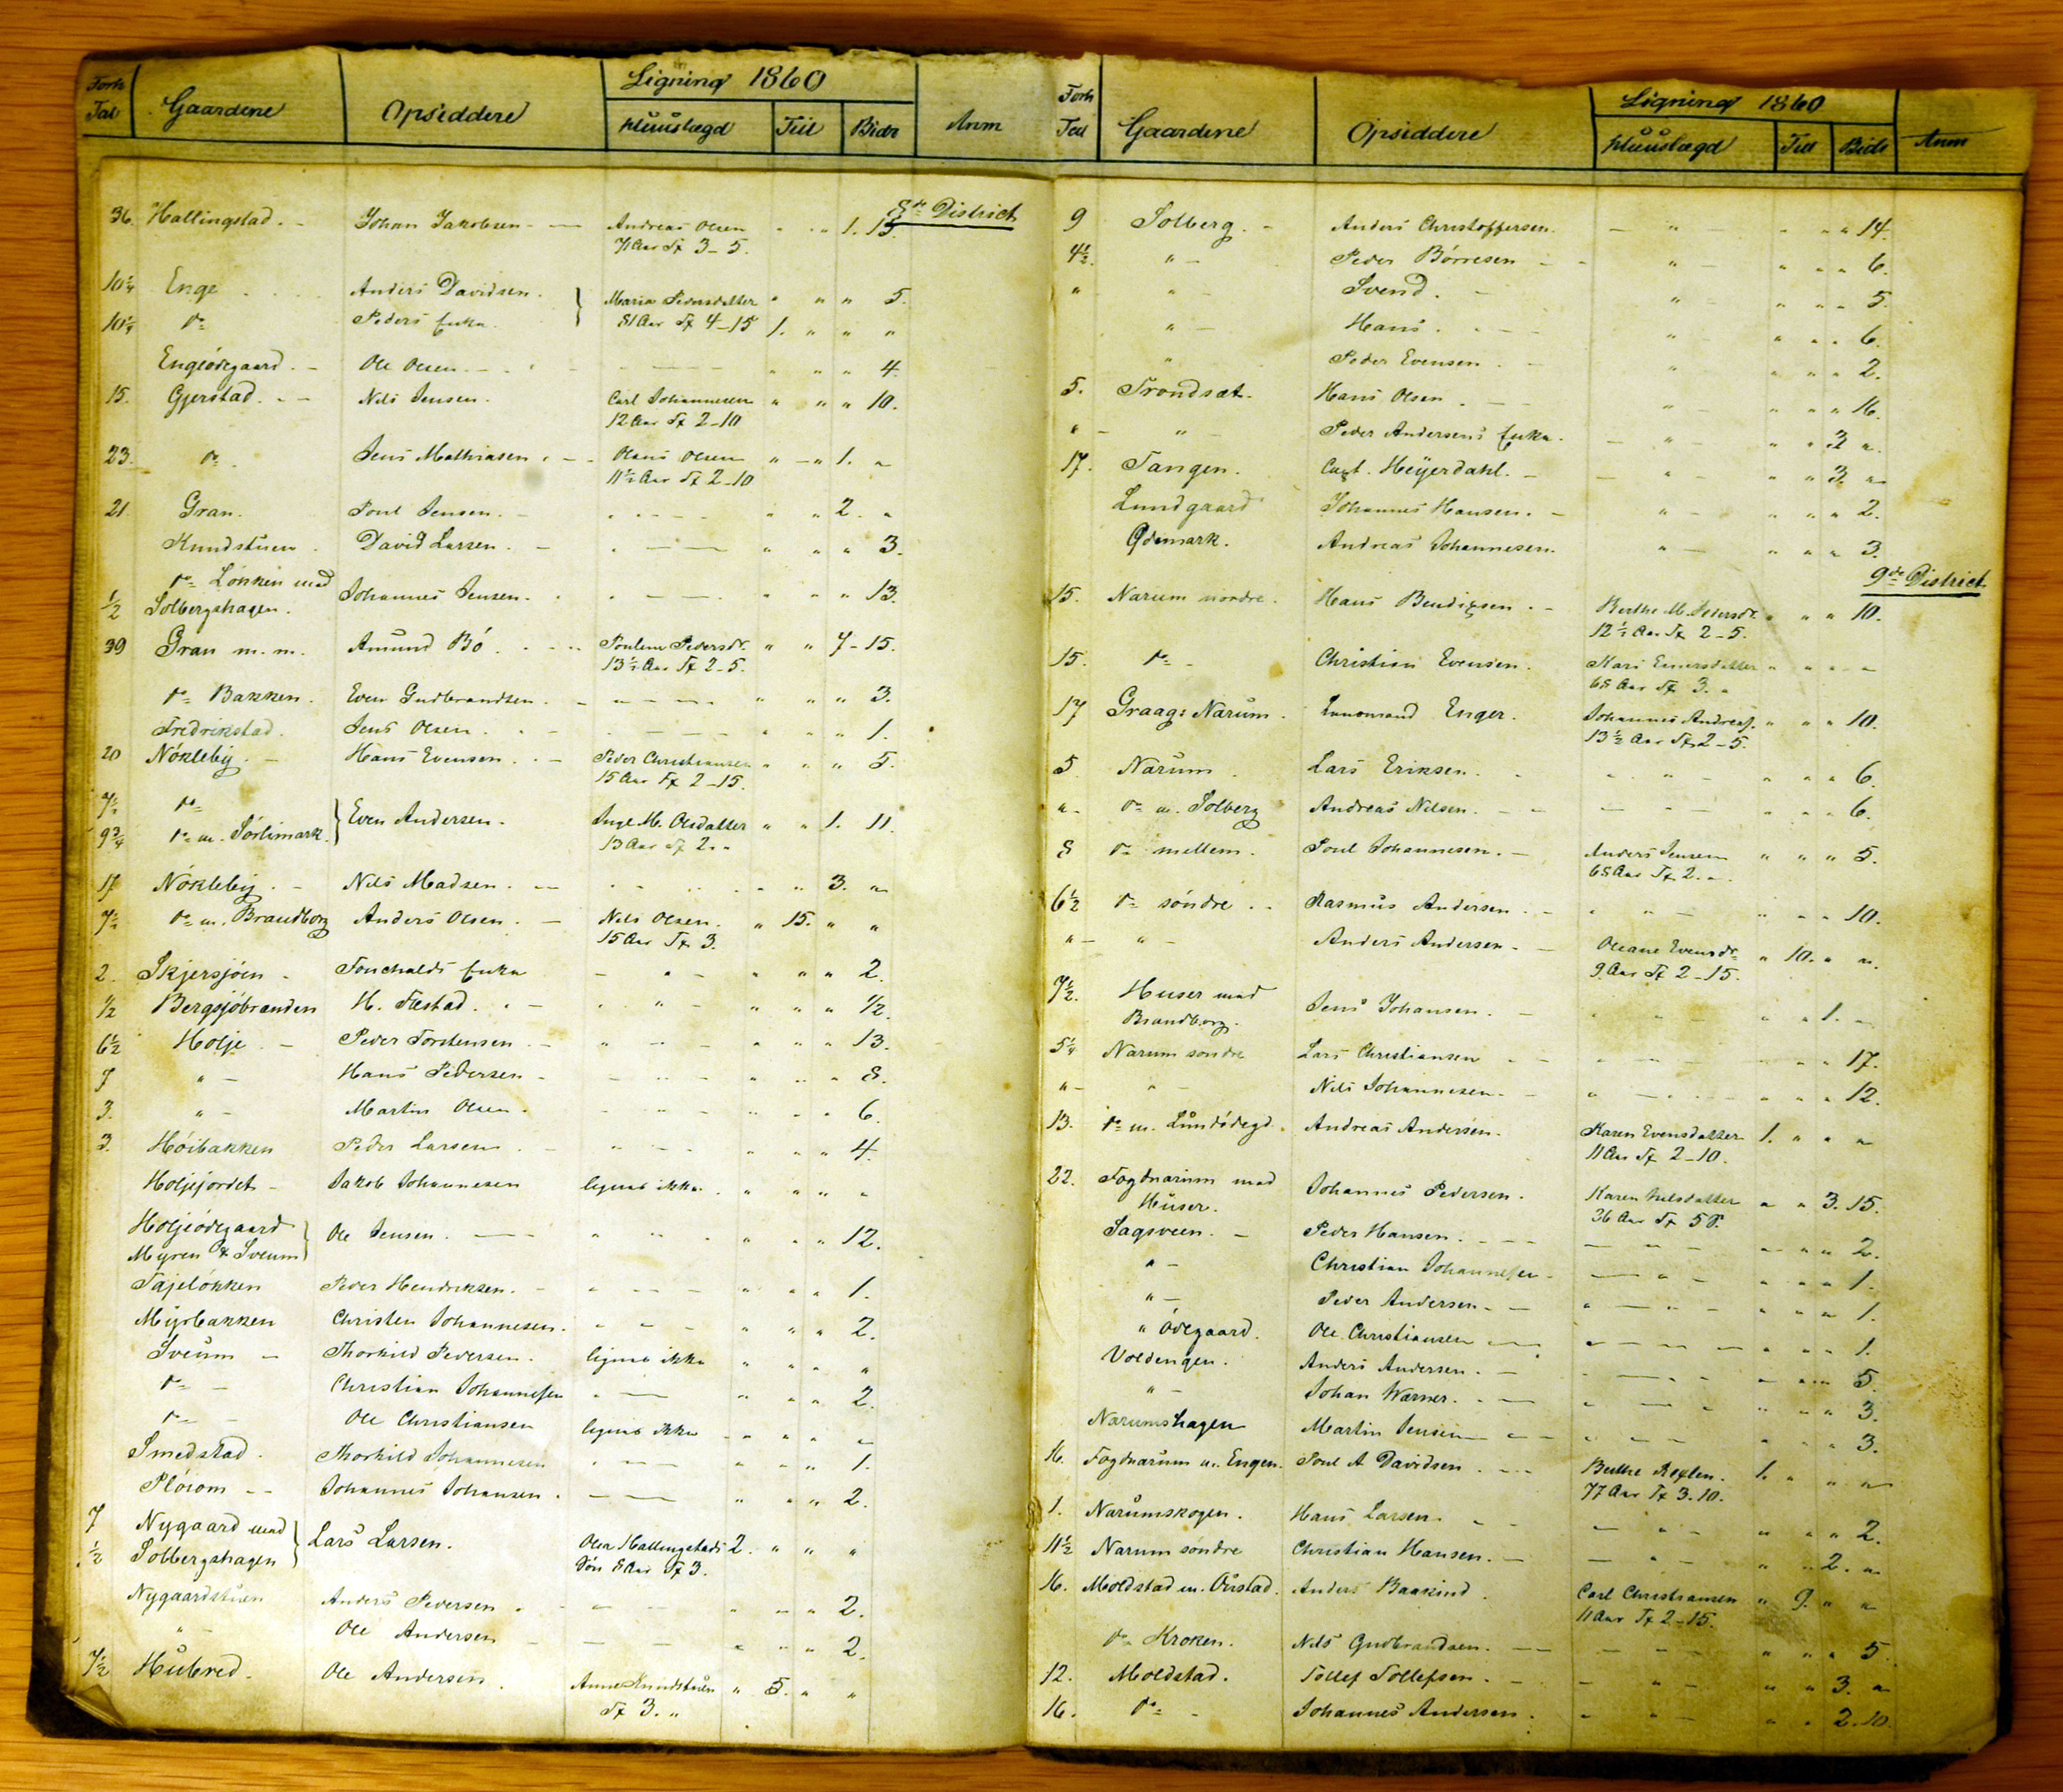 Forh Tal Gaardene Opsiddere Ligning 1860 Anm
Huuslægd Teil Bidr
8de District
36. Hallingstad. - Johan Jakobsen - Andreas Olsen " " 1. 15.
7 Aar Sp 3-5.
10¼ Enge Anders Davidsen. Maria Pedersdatter " " " 5.
10¼ do Peders Enke 81 Aar Sp 4-15 1. " " "
Engeödegaard. - Ole Olsen - " " " 4.
15. Gjerstad. - Nils Jensen. Carl Johannesen " " " 10.
12 Aar Sp 2-10
23. do Jens Mathiasen. - Olaus Olsen " " 1. "
11½ Aar Sp 2-10
21 Gran. Poul Jensen. - " " 2. "
Kundstuen. David Larsen. - " " " 3.
do Lökken med
½ Solbergshagen. Johannes Jensen. - " " " 13.
39 Gran m. m. Amund Bö Pouline Pedersdr. " " 7-15.
13½ Aar Sp 2-5.
do Bakken. Even Gudbrandsen. - " " " 3.
Fredrikstad. Jens Olsen. - " " " 1.
20 Nökleby. - Hans Evensen. - Peder Christiansen " " " 5.
15 Aar Sp 2-15.
7½ do
9¾ do m. Sörlimark. Even Andersen. Inge M. Olsdatter " " 1. 11.
13 Aar Sp 2. "
17 Nökleby. - Nils Madsen. - " " 3. "
7½ do m. Brandborg Anders Olsen. - Nils Olsen. " 15. " "
15 Aar Sp 3.
2. Skjersjöen - Enke - " - " " " 2.
½ Bergsjöbranden H. Fæstad. - " - " " " ½.
6½ Holje. - Peder Torstensen - " - " " " 13.
7 " - Hans Pedersen - " - " " " 8.
3. " - Martin Olsen. - " - " " " 6.
3. Höibakken Peder Larsen. - " - " " " 4.
Holjejordet - Jakob Johannesen lignes ikke. " " " "
Holjeödegaard
Myren & Sveum Ole Jensen. - " " " 12.
Tajelökken Peder Hendriksen. - " " " 1.
Myrbakken Christen Johannesen. - " " " 2.
Sveum - Thorkild Pedersen. lignes ikke " " " "
do - Christian Johannesen - " " " 2.
do - Ole Christiansen lignes ikke " " " "
Smedstad. Thorkild Johannesen - " " " 1.
Plöiom - Johannes Johansen. - " " " 2.
7 Nygaard med
½ Solbergshagen Lars Larsen. Hallingstads 2. " " "
Sön 8 Aar Sp 3.
Nygaardstuen Anders Pedersen. - " " " 2.
" - Ole Andersen - " " " 2.
7½ Hubred. Ole Andersen. Anne Kundstuen " 5. " "
Sp 3. "
Forh Tal Gaardene Opsiddere Ligning 1860 Anm
Huuslægd Teil Bidr
9 Solberg. - Anders Christoffersen. - " - " " " 14.
4½. " - Peder Börresen - " - " " " 6.
" " - Svend. - " " " " 5.
" - Hans. - " " " " 6.
" Peder Evensen. - " " " " 2.
5. Trondsæt. Hans Olsen. - " - " " " 16.
" - " - Peder Andersens Enke. - " - " " 3 "
17. Tangen. Capt. Heyerdahl. - " - " " 3. "
Lundgaard Johannes Hansen. - " - " " " 2.
Ödemark. Andreas Johannesen. " - " " " 3.
9de District
15. Narum nordre. Hans Bendixen. - Berthe M. Pedersdr. " " " 10.
12½ Aar Sp 2-5.
15. do - Christian Evensen. Kari Einersdatter " " " "
68 Aar Sp 3. "
17 Graag: Narum. Enger. Johannes Andreas. " " " 10.
13½ Aar Sp 2-5.
5 Narum. Lars Eriksen. " - " " " 6.
" - do m. Solberg Andreas Nilsen. - " " " 6.
8 do mellem. Poul Johannesen. - Anders Jensen " " " 5.
68 Aar Sp 2. "
6½ do söndre. Rasmus Andersen. - " " " 10.
" - " - Anders Andersen - Oleane Evensdr. " 10. " "
9 Aar Sp 2-15.
7½. Huser med
Brandborg. Jens Johansen. - " " 1. "
5¼ Narum söndre Lars Christiansen - " " " 17.
" - " - Nils Johannesen. - " " " 12.
13. do m. Lundödegd. Andreas Andersen. Karen Evensdatter 1. " " "
11 Aar Sp 2-10.
22. Fogdnarum med
Huser. Johannes Pedersen. Karen Nilsdatter " " 3. 15.
36 Aar Sp 5
Sagveen. - Peder Hansen. - " " " 2.
" - Christian Johannesen - " " " 1.
" - Peder Andersen - " " " 1.
" Ödegaard. Ole Christiansen - " " " 1.
Voldengen. Anders Andersen. - " " " 5.
" - Johan Warner. - " " " 3.
Narumshagen Martin Jensen - " " " 3.
16. Fogdnarum m. Engen. Poul A Davidsen. - Berthe 1. " " "
77 Aar Sp 3.10.
1. Narumskogen. Hans Larsen. - " " " 2.
11½ Narum söndre Christian Hansen. - " " 2. "
16. Moldstad m. Aarstad. Anders Baakind. Carl Christiansen " 9. " "
11 Aar Sp 2-15.
do Kroken. Nils Gudbrandsen. - " " " 5
12. Moldstad. Tollef Tollefsen. - " - " " 3. "
16. do - Johannes Andersen. " " - " " 2. 10.